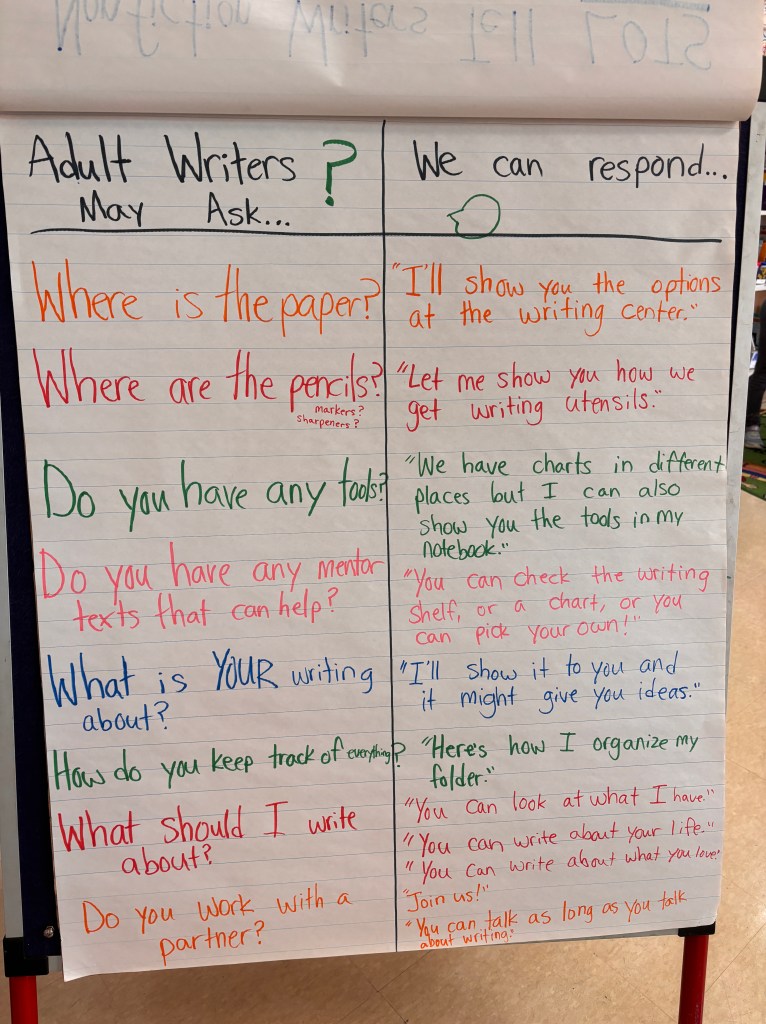 Nonfiction Writers Tell LOTS
Adult Writers ?
May Ask...
We can respond...
Where is the paper?
"I'll show you the options
at the writing center."
Where are the pencils?
markers?
sharpeners?
"Let me show you how we
get writing utensils."
Do you have any tools?
"We have charts in different
places but I can also
show you the tools in my
notebook."
Do you have any mentor
texts that can help?
"You can check the writing
shelf, or a chart, or you
can pick your own!"
What is YOUR writing
about?
"I'll show it to you and
it might give you ideas."
How do you keep track of everything?
"Here's how I organize my
folder."
What should I write
about?
"You can look at what I have."
"You can write about your life."
"You can write about what you love!
Do you work with a
partner?
"Join us!"
"You can talk as long as you talk
about writing."